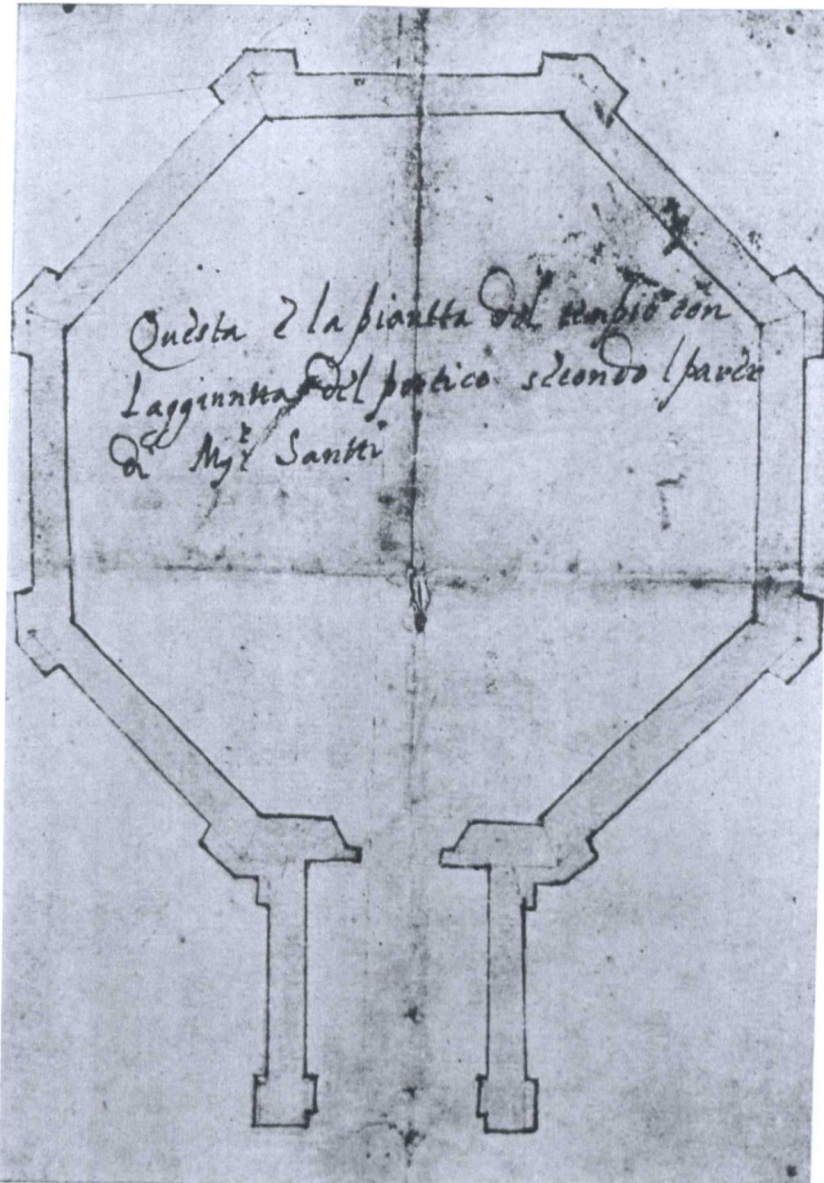 Questa è la piantta del tempio con
Laggiuntta del portico secondo l parer
di M^r Santti